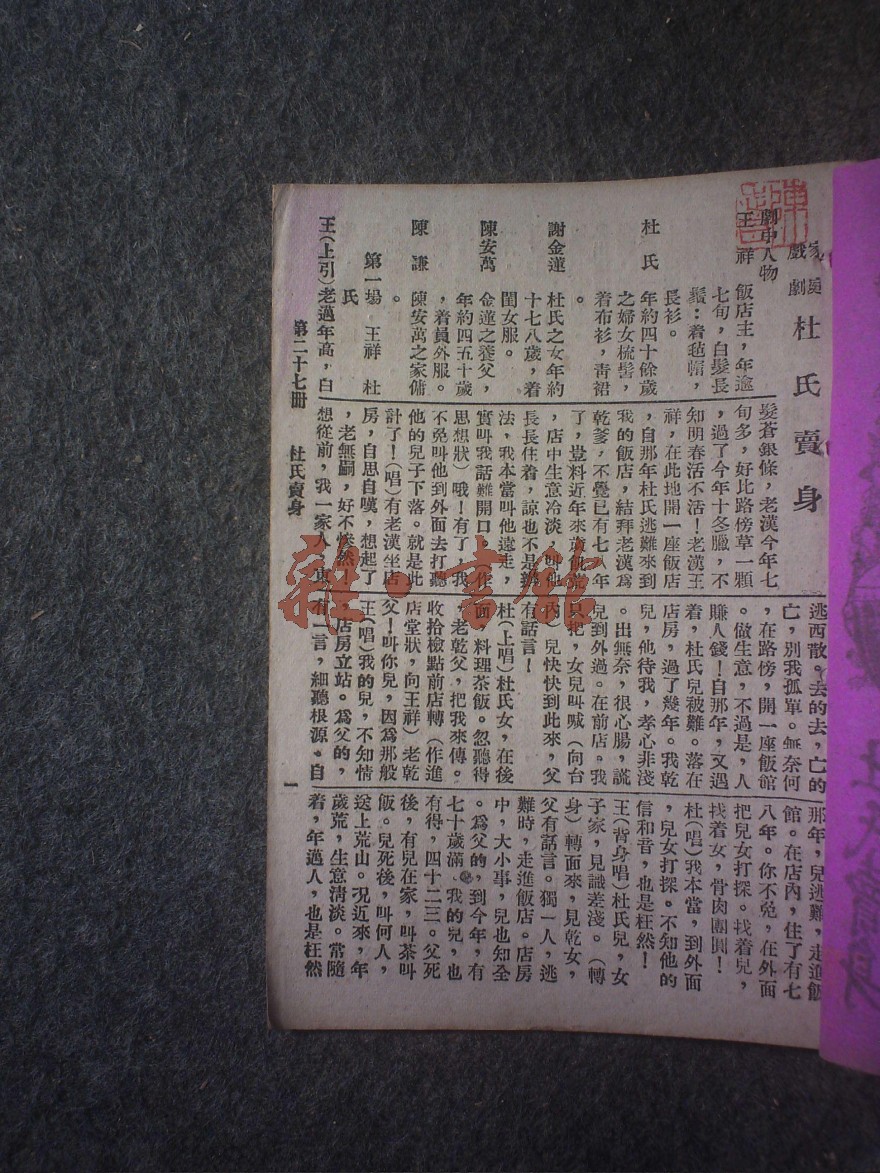 戲劇
杜氏賣身
劇中人物
王祥 飯店主，年逾
七旬，白髮長
鬚：着毡帽，
長衫。
杜氏 年約四十餘歲
之婦女梳髻，
着布衫，青裙
。
謝金蓮 杜氏之女年約
十七八歲，着
閨女服。
陳安萬 金蓮之養父，
年約四五十歲
，着員外服。
陳謙 陳安萬之家傭
。
第一場 王祥 杜
氏
王（上引）老邁年高，白
髮蒼銀條，老漢今年七
旬多，好比路傍草一顆
，過了今年十冬臘，不
知明春活不活！老漢王
祥，在此地開一座飯店
，自那年杜氏逃難來到
我的飯店，結拜老漢爲
乾爹，不覺已有七八年
了，豈料近年來歲飢荒
，店中生意冷淡，叫他
長長住着，諒也不是辦
法，我本當叫他遠走，
實叫我話難開口。（作
思想狀）哦！有了，我
不免叫他到外面去打聽
他的兒子下落。就是此
計了！（唱）有老漢坐店
房，自思自嘆，想起了
，老無嗣，好不慘然！
想從前，我一家人，東
逃西散。去的去，亡的
亡，別我孤單。無奈何
，在路傍，開一座飯館
。做生意，不過是，人
賺人錢！自那年，又遇
着，杜氏兒被難。落在
店房，過了幾年。我乾
兒，他待我，孝心非淺
。出無奈，很心腸，謊
兒到外過。在前店。我
只把，女兒叫喊（向台
內）兒快快到此來，父
有話言！
杜（上唱）杜氏女，在後
面，料理茶飯。忽聽得
，老乾父，把我來傳。
收拾檢點前店轉（作進
店堂狀，向王祥）老乾
父！叫你兒，因爲那般
王（唱）我的兒，不知情
，店房立站。爲父的，
有一言，細聽根源。自
那年，兒逃難，走進飯
館。在店內，住了有七
八年。你不免，在外面
把兒女打探。找着兒，
找着女，骨肉團圓！
杜（唱）我本當，到外面
，兒女打探。不知他的
信和音，也是枉然！
王（背身唱）杜氏兒，女
子家，見識差淺。（轉
身）轉面來，見乾女，
父有話言。獨一人，逃
難時，走進飯店。店房
中，大小事，兒也知全
。爲父的，到今年，有
七十歲滿。我的兒，也
有得，四十二三。父死
後，有兒在家，叫茶叫
飯。兒死後，叫何人，
送上荒山。況近來，年
歲荒，生意清淡。常隨
着，年邁人，也是枉然
第二十七冊 杜氏賣身 一
雜·書館